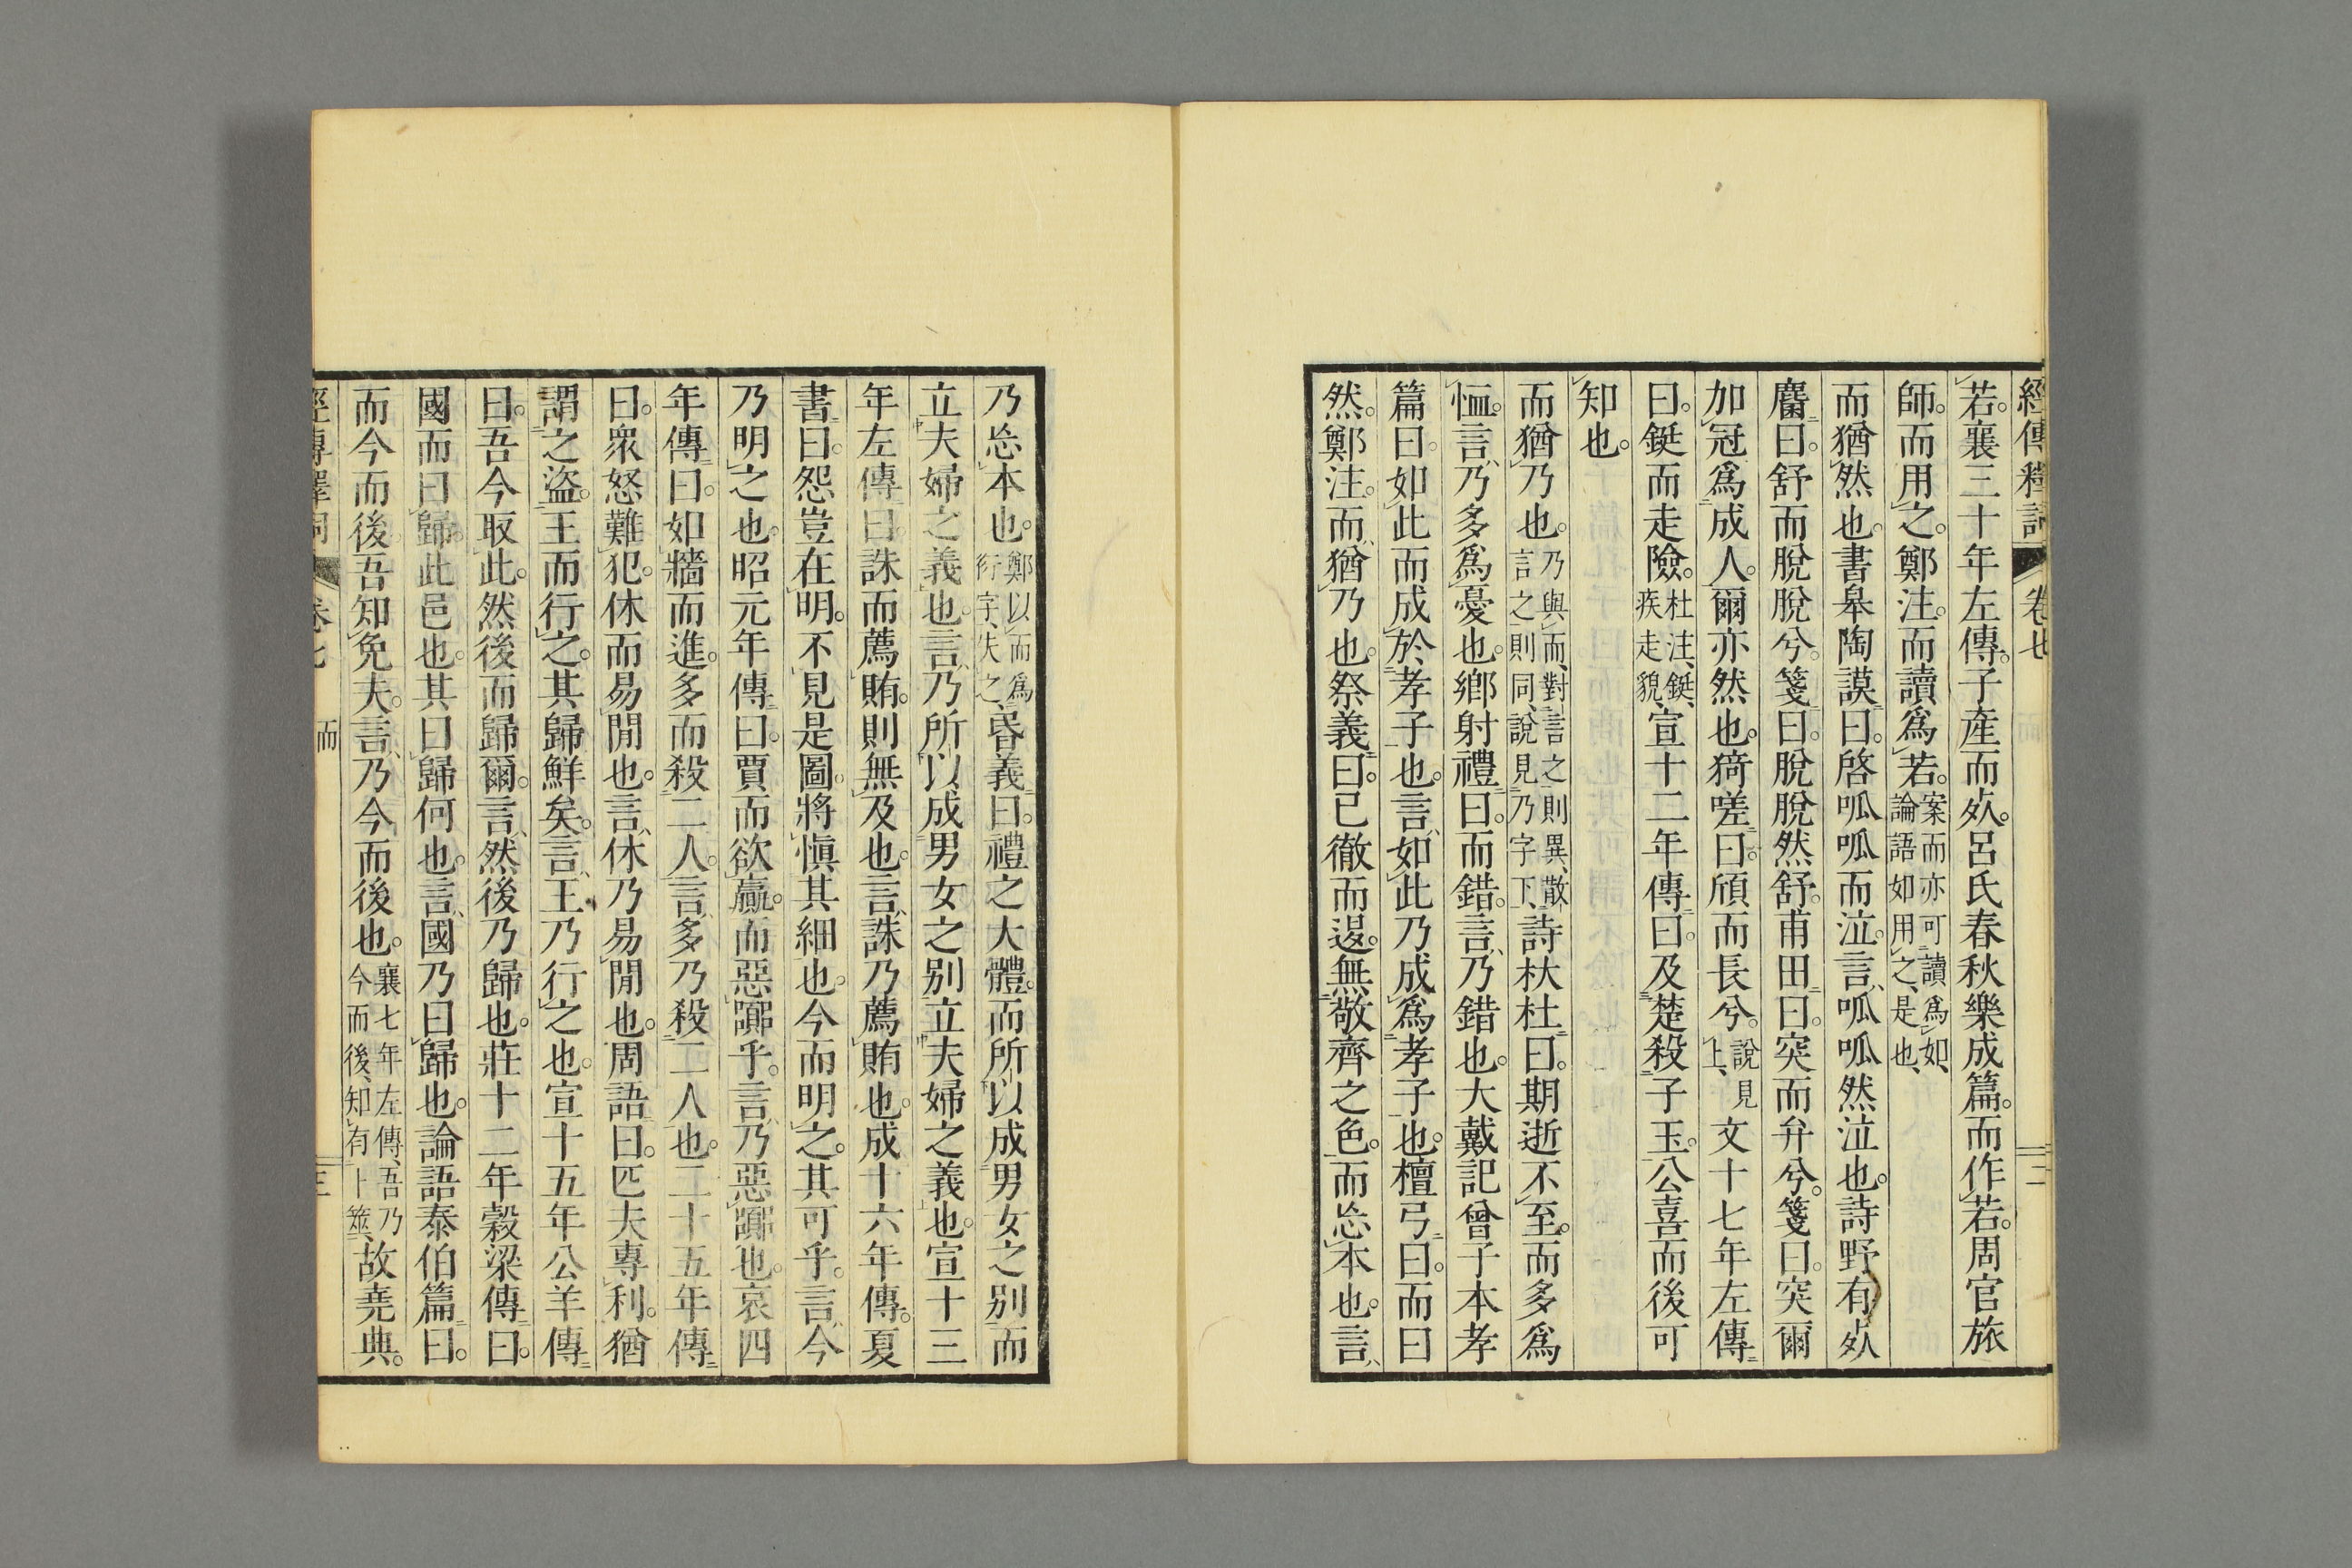 經傳釋詞 卷七 二
若。襄三十年左傳。子產而死。呂氏春秋樂成篇。而作若。周官旅
師。而用之。鄭注。而讀爲若。案而亦可讀爲如、論語如用之、是也、
而猶然也。書皋陶謨曰。啓呱呱而泣。言、呱呱然泣也。詩野有死
麕曰。舒而脫脫兮。箋曰。脫脫然舒。甫田曰。突而弁兮。箋曰。突爾
加冠爲成人。爾亦然也。猗嗟曰。頎而長兮。說見上、文十七年左傳
曰。鋌而走險。杜注、鋌、疾走貌、宣十二年傳曰。及楚殺子玉。公喜而後可
知也。
而猶乃也。乃與而、對言之則異、散言之則同、說見乃字下、詩杕杜曰。期逝不至。而多爲
恤。言、乃多爲憂也。鄉射禮曰。而錯。言、乃錯也。大戴記曾子本孝
篇曰。如此而成於孝子也。言、如此乃成爲孝子也。檀弓曰。而曰
然。鄭注。而、猶乃也。祭義曰。已徹而退。無敬齊之色。而忘本也。言、
乃忘本也。鄭以而爲衍字、失之、昏義曰。禮之大體。而所以成男女之別。而
立夫婦之義也。言、乃所以成男女之别立夫婦之義也。宣十三
年左傳曰。誅而薦賄。則無及也。言、誅乃薦賄也。成十六年傳。夏
書曰。怨豈在明。不見是圖。將慎其細也。今而明之。其可乎。言、今
乃明之也。昭元年傳曰。賈而欲贏。而惡囂乎。言、乃惡囂也。哀四
年傳曰。如牆而進。多而殺二人。言、多乃殺二人也。二十五年傳
曰。衆怒難犯。休而易閒也。言、休乃易閒也。周語曰。匹夫專利。猶
謂之盜。王而行之。其歸鮮矣。言、王乃行之也。宣十五年公羊傳
曰。吾今取此。然後而歸爾。言、然後乃歸也。莊十二年穀梁傳曰。
國而曰歸。此邑也。其曰歸何也。言、國乃曰歸也。論語泰伯篇曰。
而今而後。吾知免夫。言、乃今而後也。襄七年左傳、吾乃今而後、知有卜筮、故堯典。
經傳釋詞 卷七 而 三